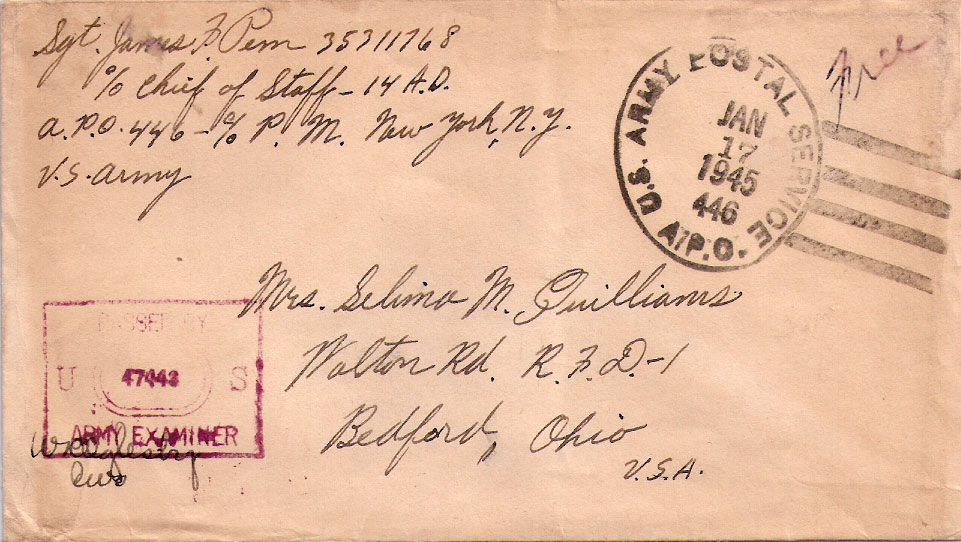 Sgt. James F Pem 35311768
c/o Chief of Staff - 14 A.D.
A.P.O. 446 - c/o P. M. New York, N.Y.
U.S. Army
Free
U.S. ARMY POSTAL SERVICE
JAN
17
1945
446
A.P.O.
Mrs. Selima M. Quilliams
Walton Rd. R.F.D-1
Bedford, Ohio
U.S.A.
PASSED BY
U 47443 S
ARMY EXAMINER